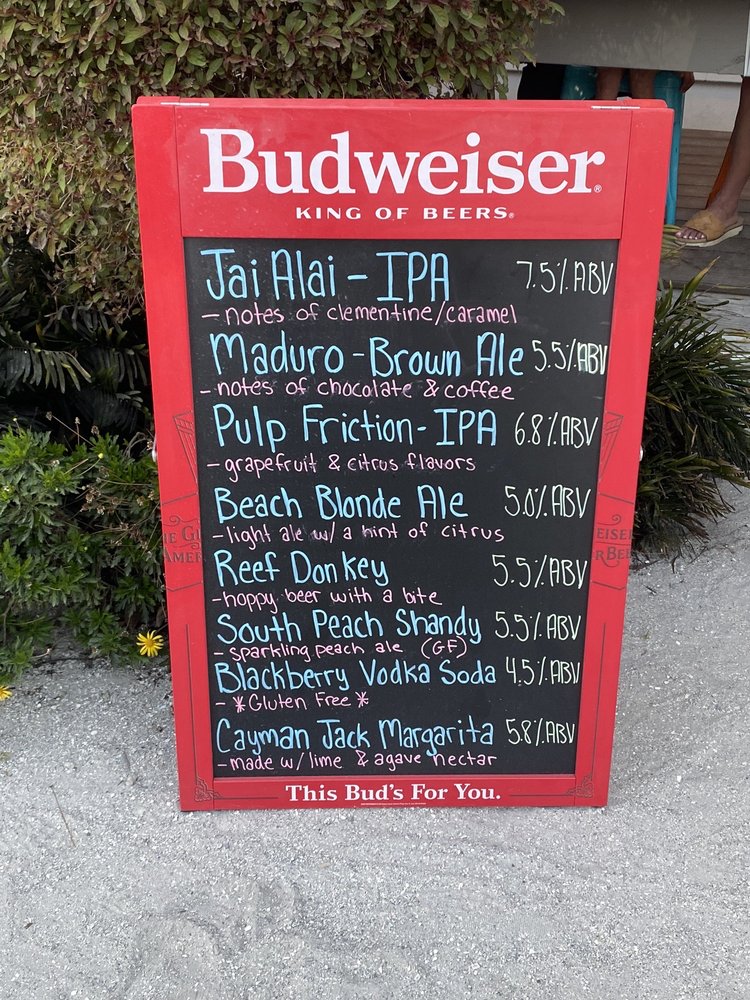 Budweiser®
KING OF BEERS®
Jai Alai - IPA 7.5% ABV
- notes of clementine/caramel
Maduro - Brown Ale 5.5% ABV
- notes of chocolate & coffee
Pulp Friction - IPA 6.8% ABV
- grapefruit & citrus flavors
Beach Blonde Ale 5.0% ABV
- light ale w/ a hint of citrus
Reef Donkey 5.5% ABV
- hoppy beer with a bite
South Peach Shandy 5.5% ABV
- sparkling peach ale (GF)
Blackberry Vodka Soda 4.5% ABV
- *Gluten Free*
Cayman Jack Margarita 5.8% ABV
- made w/ lime & agave nectar
This Bud's For You.